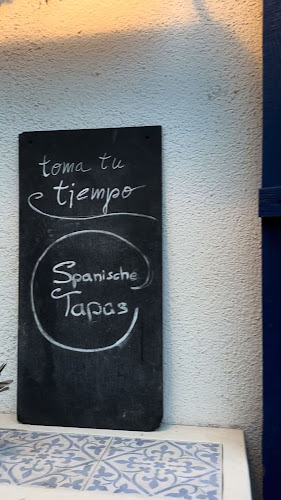 toma tu
tiempo
Spanische
Tapas